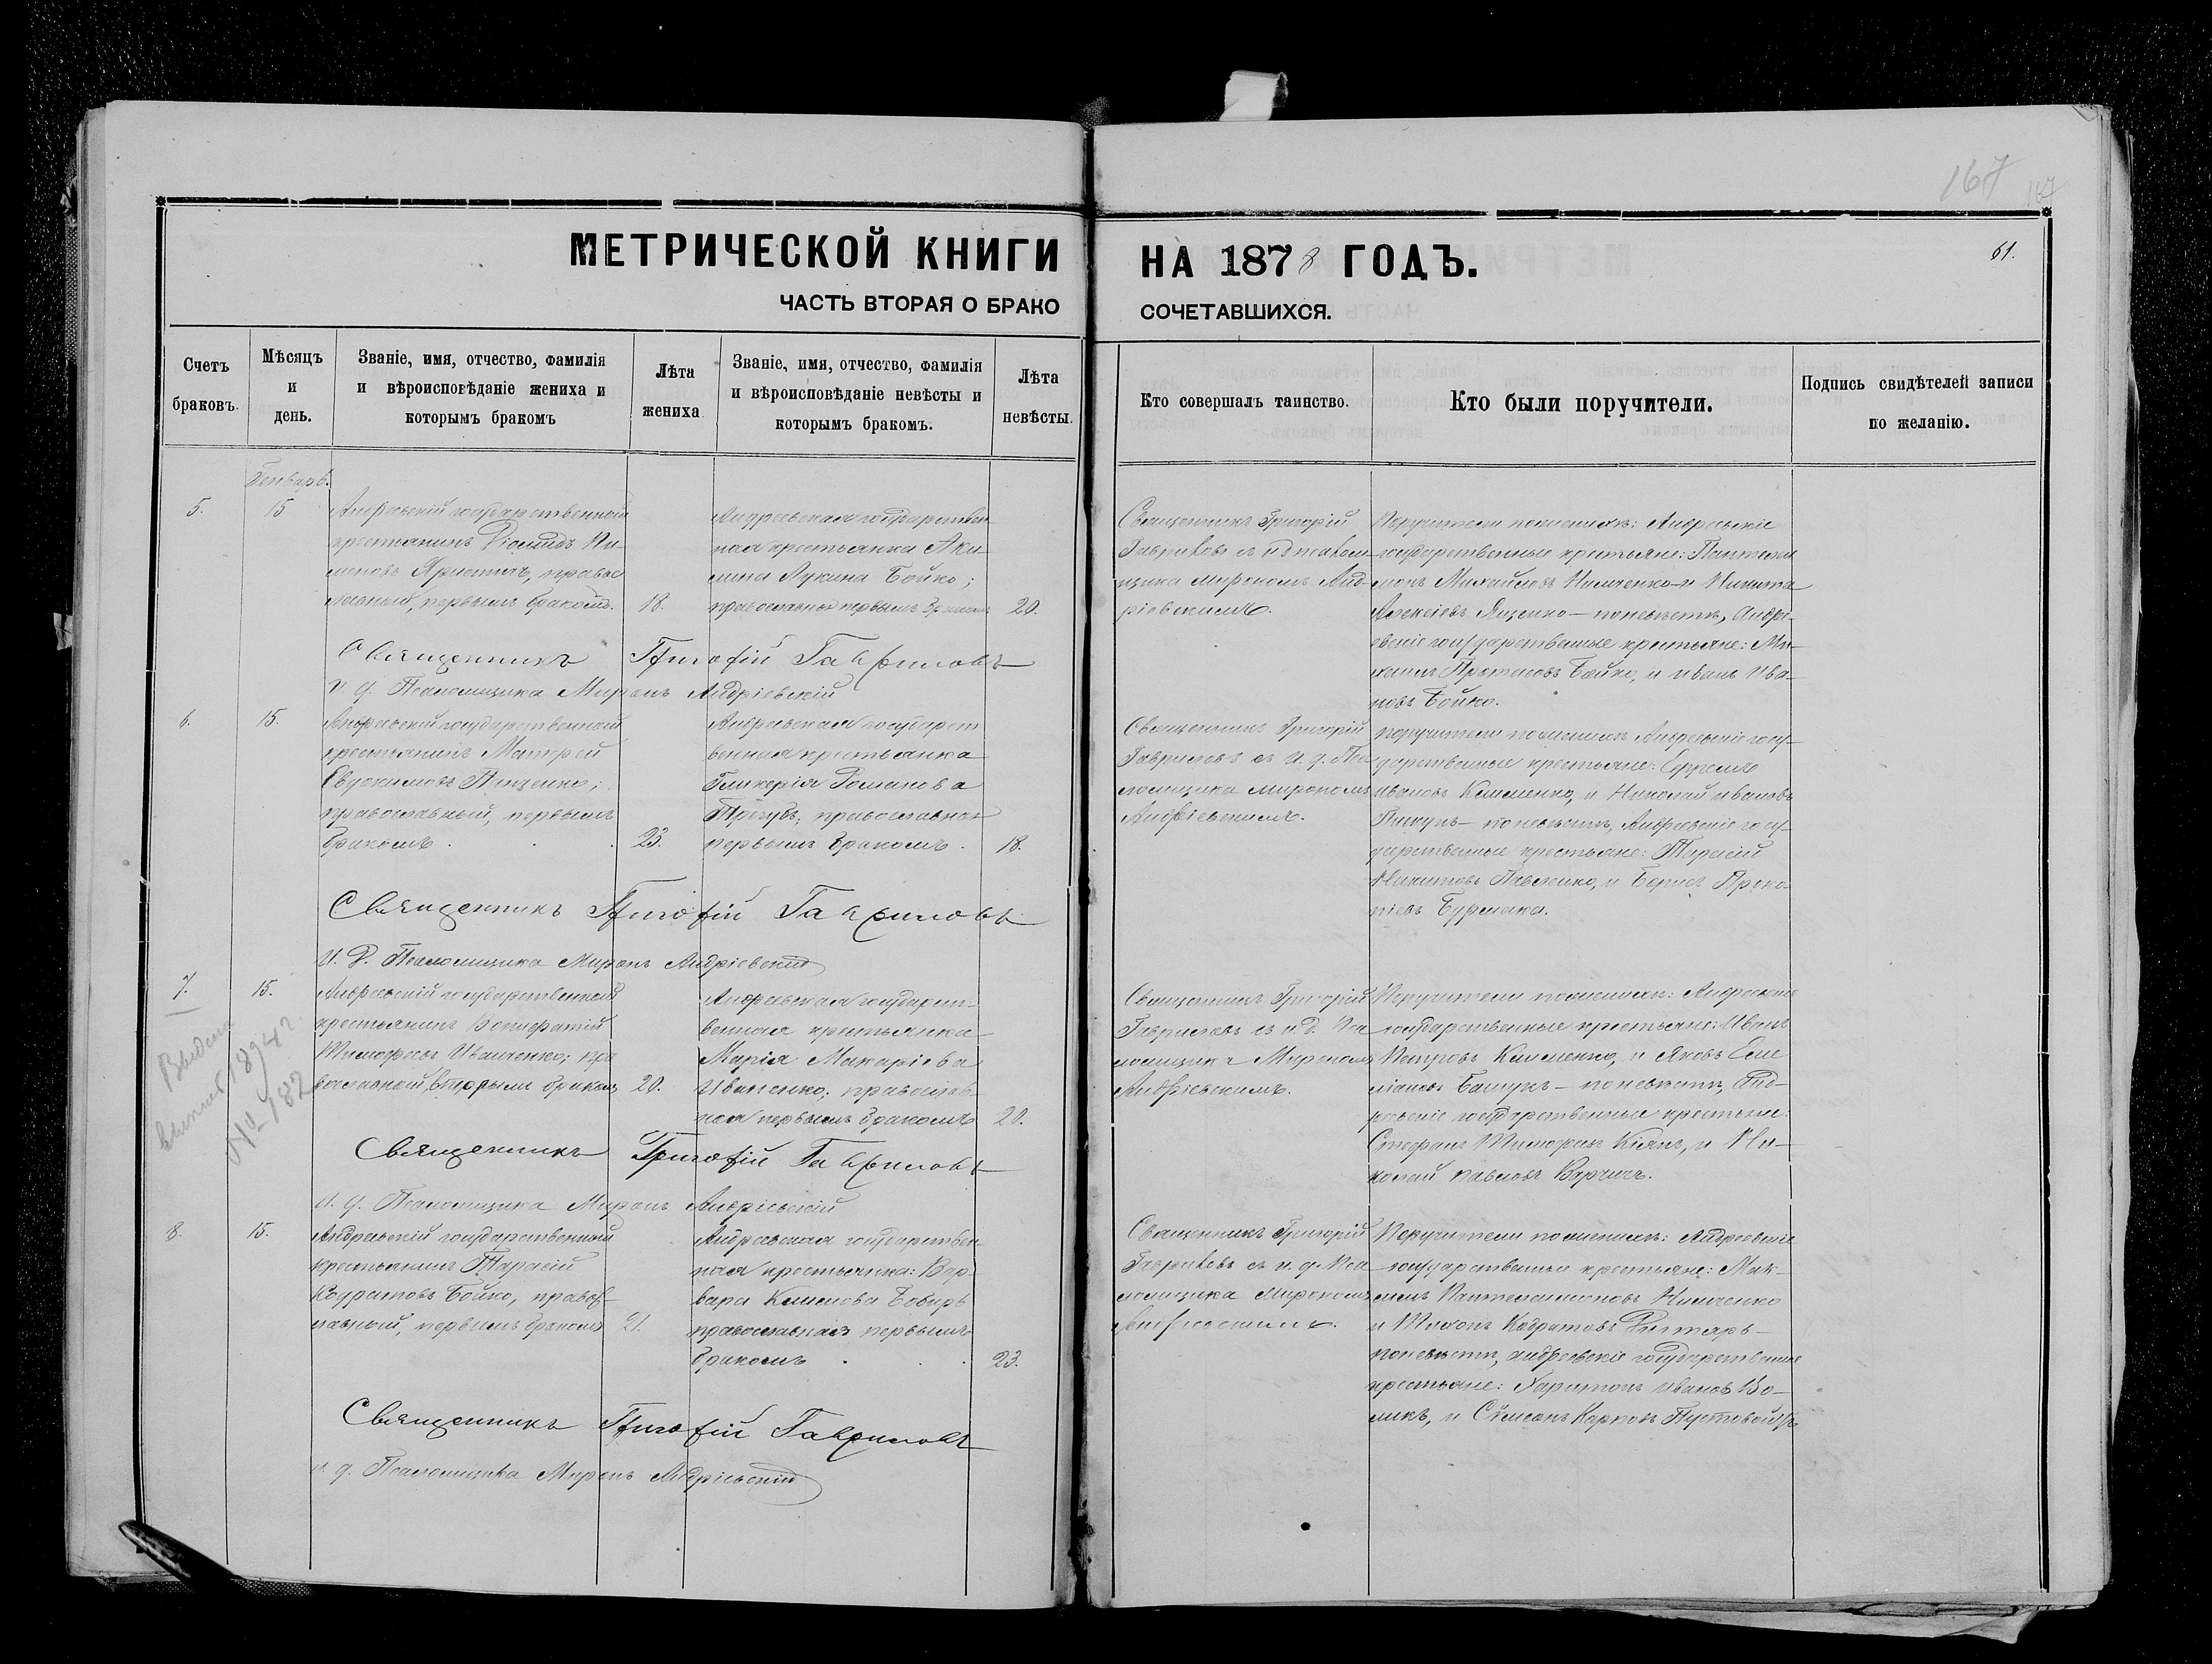 167
167
МЕТРИЧЕСКОЙ КНИГИ НА 1878 ГОДЪ.
61.
ЧАСТЬ ВТОРАЯ О БРАКО СОЧЕТАВШИХСЯ.
Счетъ браковъ.
Мѣсяцъ и день.
Званіе, имя, отчество, фамилія и вѣроисповѣданіе жениха и которымъ бракомъ
Лѣта жениха
Званіе, имя, отчество, фамилія и вѣроисповѣданіе невѣсты и которымъ бракомъ.
Лѣта невѣсты.
Кто совершалъ таинство.
Кто были поручители.
Подпись свидѣтелей записи по желанію.
Генварь.
5.
15
государственный
крестьянинъ Діомидъ Пи-
меновъ правос
лавный, первымъ бракомъ.
18.
Андреевская государствен-
ная крестьянка Аки-
лина Лукина Бойко;
православная первымъ бракомъ
20.
Священникъ Григорій
Гавриловъ съ
щика Мирономъ Анд-
ріевскимъ.
Поручители по женихѣ: Андреевскіе
государственные крестьяне: Пантелеи
монъ Михайловъ Нимченко и Никита
Алексіевъ Яценко — по невѣстѣ, Андре-
евскіе государственные крестьяне: Ми-
хаилъ Бойко, и Иванъ Ива-
новъ Бойко.
Священникъ Григорій Гавриловъ
и. д. Псаломщика Миронъ Андріевскій
6.
15.
Андреевскій государственный
крестьянинъ Матфей
Евдокимовъ Пищенко;
православный, первымъ
бракомъ
23.
Андреевская государст
венная крестьянка
Гликерія Романова
Тригубъ; православная
первымъ бракомъ.
18.
Священникъ Григорій
Гавриловъ съ и. д. Пса
ломщика Мирономъ
Андріевскимъ.
поручители по женихѣ Андреевскіе госу-
дарственные крестьяне: Ефремъ
Ивановъ Клименко, и Николай Ивановъ
Пискунъ — по невѣстѣ, Андреевскіе госу-
дарственные крестьяне: Тарасій
Никитовъ Павленко, и Борисъ Проко-
піевъ Бурмака.
Священникъ Григорій Гавриловъ
И. Д. Псаломщика Миронъ Андріевскій
7.
15.
1894 г.
№ 182
Андреевскій государственный
крестьянинъ Вонифатій
Тимофеевъ Иванченко; пра
вославный, вторымъ бракомъ
20.
Андреевская государст-
венная крестьянка
Марія Макаріева
Иваненко; православ-
ная первымъ бракомъ
20.
Священникъ Григорій
Гавриловъ съ и. д. Пса
ломщика Мирономъ
Андріевскимъ.
Поручители по женихѣ: Андреевскіе
государственные крестьяне: Иванъ
Петровъ Клименко, и Яковъ Еме
ліановъ Башукъ — по невѣстѣ, Анд-
реевскіе государственные крестьяне:
Стефанъ Тимофеевъ Кіянъ, и Ни-
колай Павловъ Варчичъ.
Священникъ Григорій Гавриловъ
и. д. Псаломщика Миронъ Андріевскій
8.
15.
Андреевскій государственный
крестьянинъ Тарасій
Кодратовъ Бойко, правос-
лавный, первымъ бракомъ
21.
Андреевская государствен-
ная крестьянка: Вар-
вара Климова Бобирь
православная первымъ
бракомъ
23.
Священникъ Григорій
Гавриловъ съ и. д. Пса
ломщика Мирономъ
Андріевскимъ.
Поручители по женихѣ: Андреевскіе
государственные крестьяне: Мак-
симъ Пантелеимоновъ Нимченко
и Тихонъ Кодратовъ
по невѣстѣ, андреевскіе государственные
крестьяне: Харитонъ Ивановъ Во-
ликъ, и Симеонъ Карповъ Пустовойтъ
Священникъ Григорій Гавриловъ
и. д. Псаломщика Миронъ Андріевскій